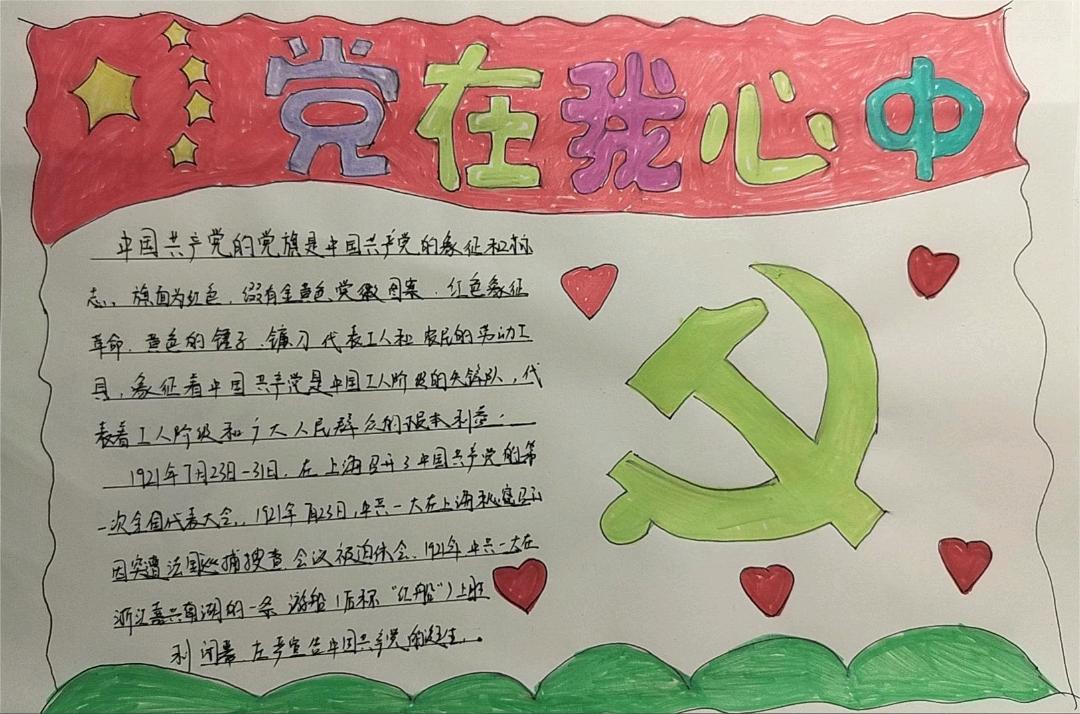 党在我心中
中国共产党的党旗是中国共产党的象征和标
志。旗面为红色,缀有金黄色党徽图案.红色象征
革命.黄色的锤子.镰刀代表工人和农民的劳动工
具,象征着中国共产党是中国工人阶级的先锋队,代
表着工人阶级和广大人民群众的根本利益.
1921年7月23日-31日.在上海召开了中国共产党的第
一次全国代表大会..1921年7月23日,中共一大在上海秘密召开
因突遭法国巡捕搜查会议被迫休会.1921年中共一大在
浙江嘉兴南湖的一条游船(后称"红船")上胜
利闭幕.庄严宣告中国共产党的诞生..